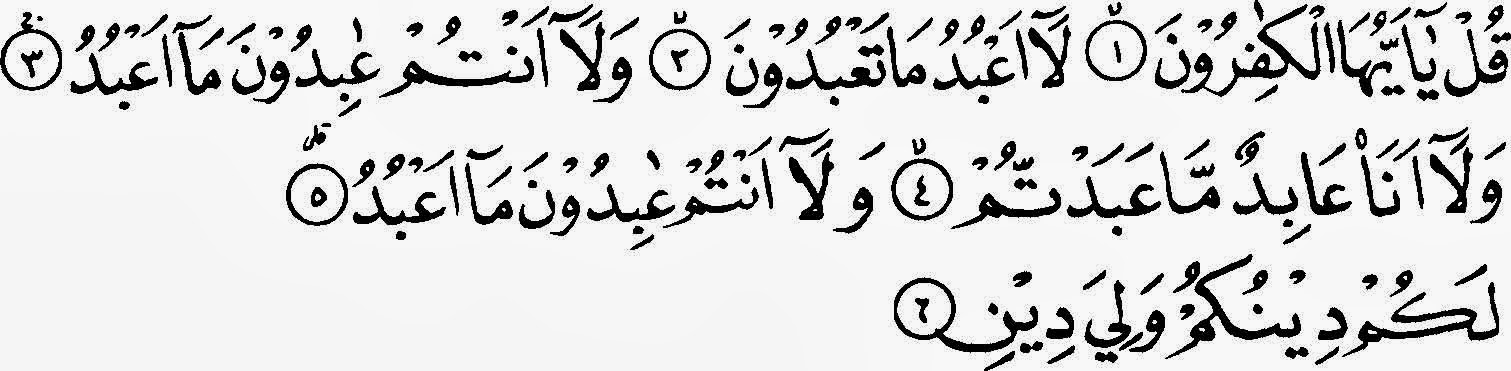 قُلْ يٰٓاَيُّهَا الْكٰفِرُوْنَ ۙ﴿١﴾ لَآ اَعْبُدُ مَا تَعْبُدُوْنَ ۙ﴿٢﴾ وَلَآ اَنْتُمْ عٰبِدُوْنَ مَآ اَعْبُدُ ۚ﴿٣﴾
وَلَآ اَنَا۠ عَابِدٌ مَّا عَبَدْتُّمْ ۙ﴿٤﴾ وَلَآ اَنْتُمْ عٰبِدُوْنَ مَآ اَعْبُدُ ۗ﴿٥﴾
لَكُمْ دِيْنُكُمْ وَلِيَ دِيْنِ ﴿٦﴾